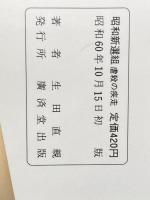 昭和新選組 虐殺の疾走 定価420円
昭和60年10月15日初版
著者 生田直親
発行所 廣済堂出版